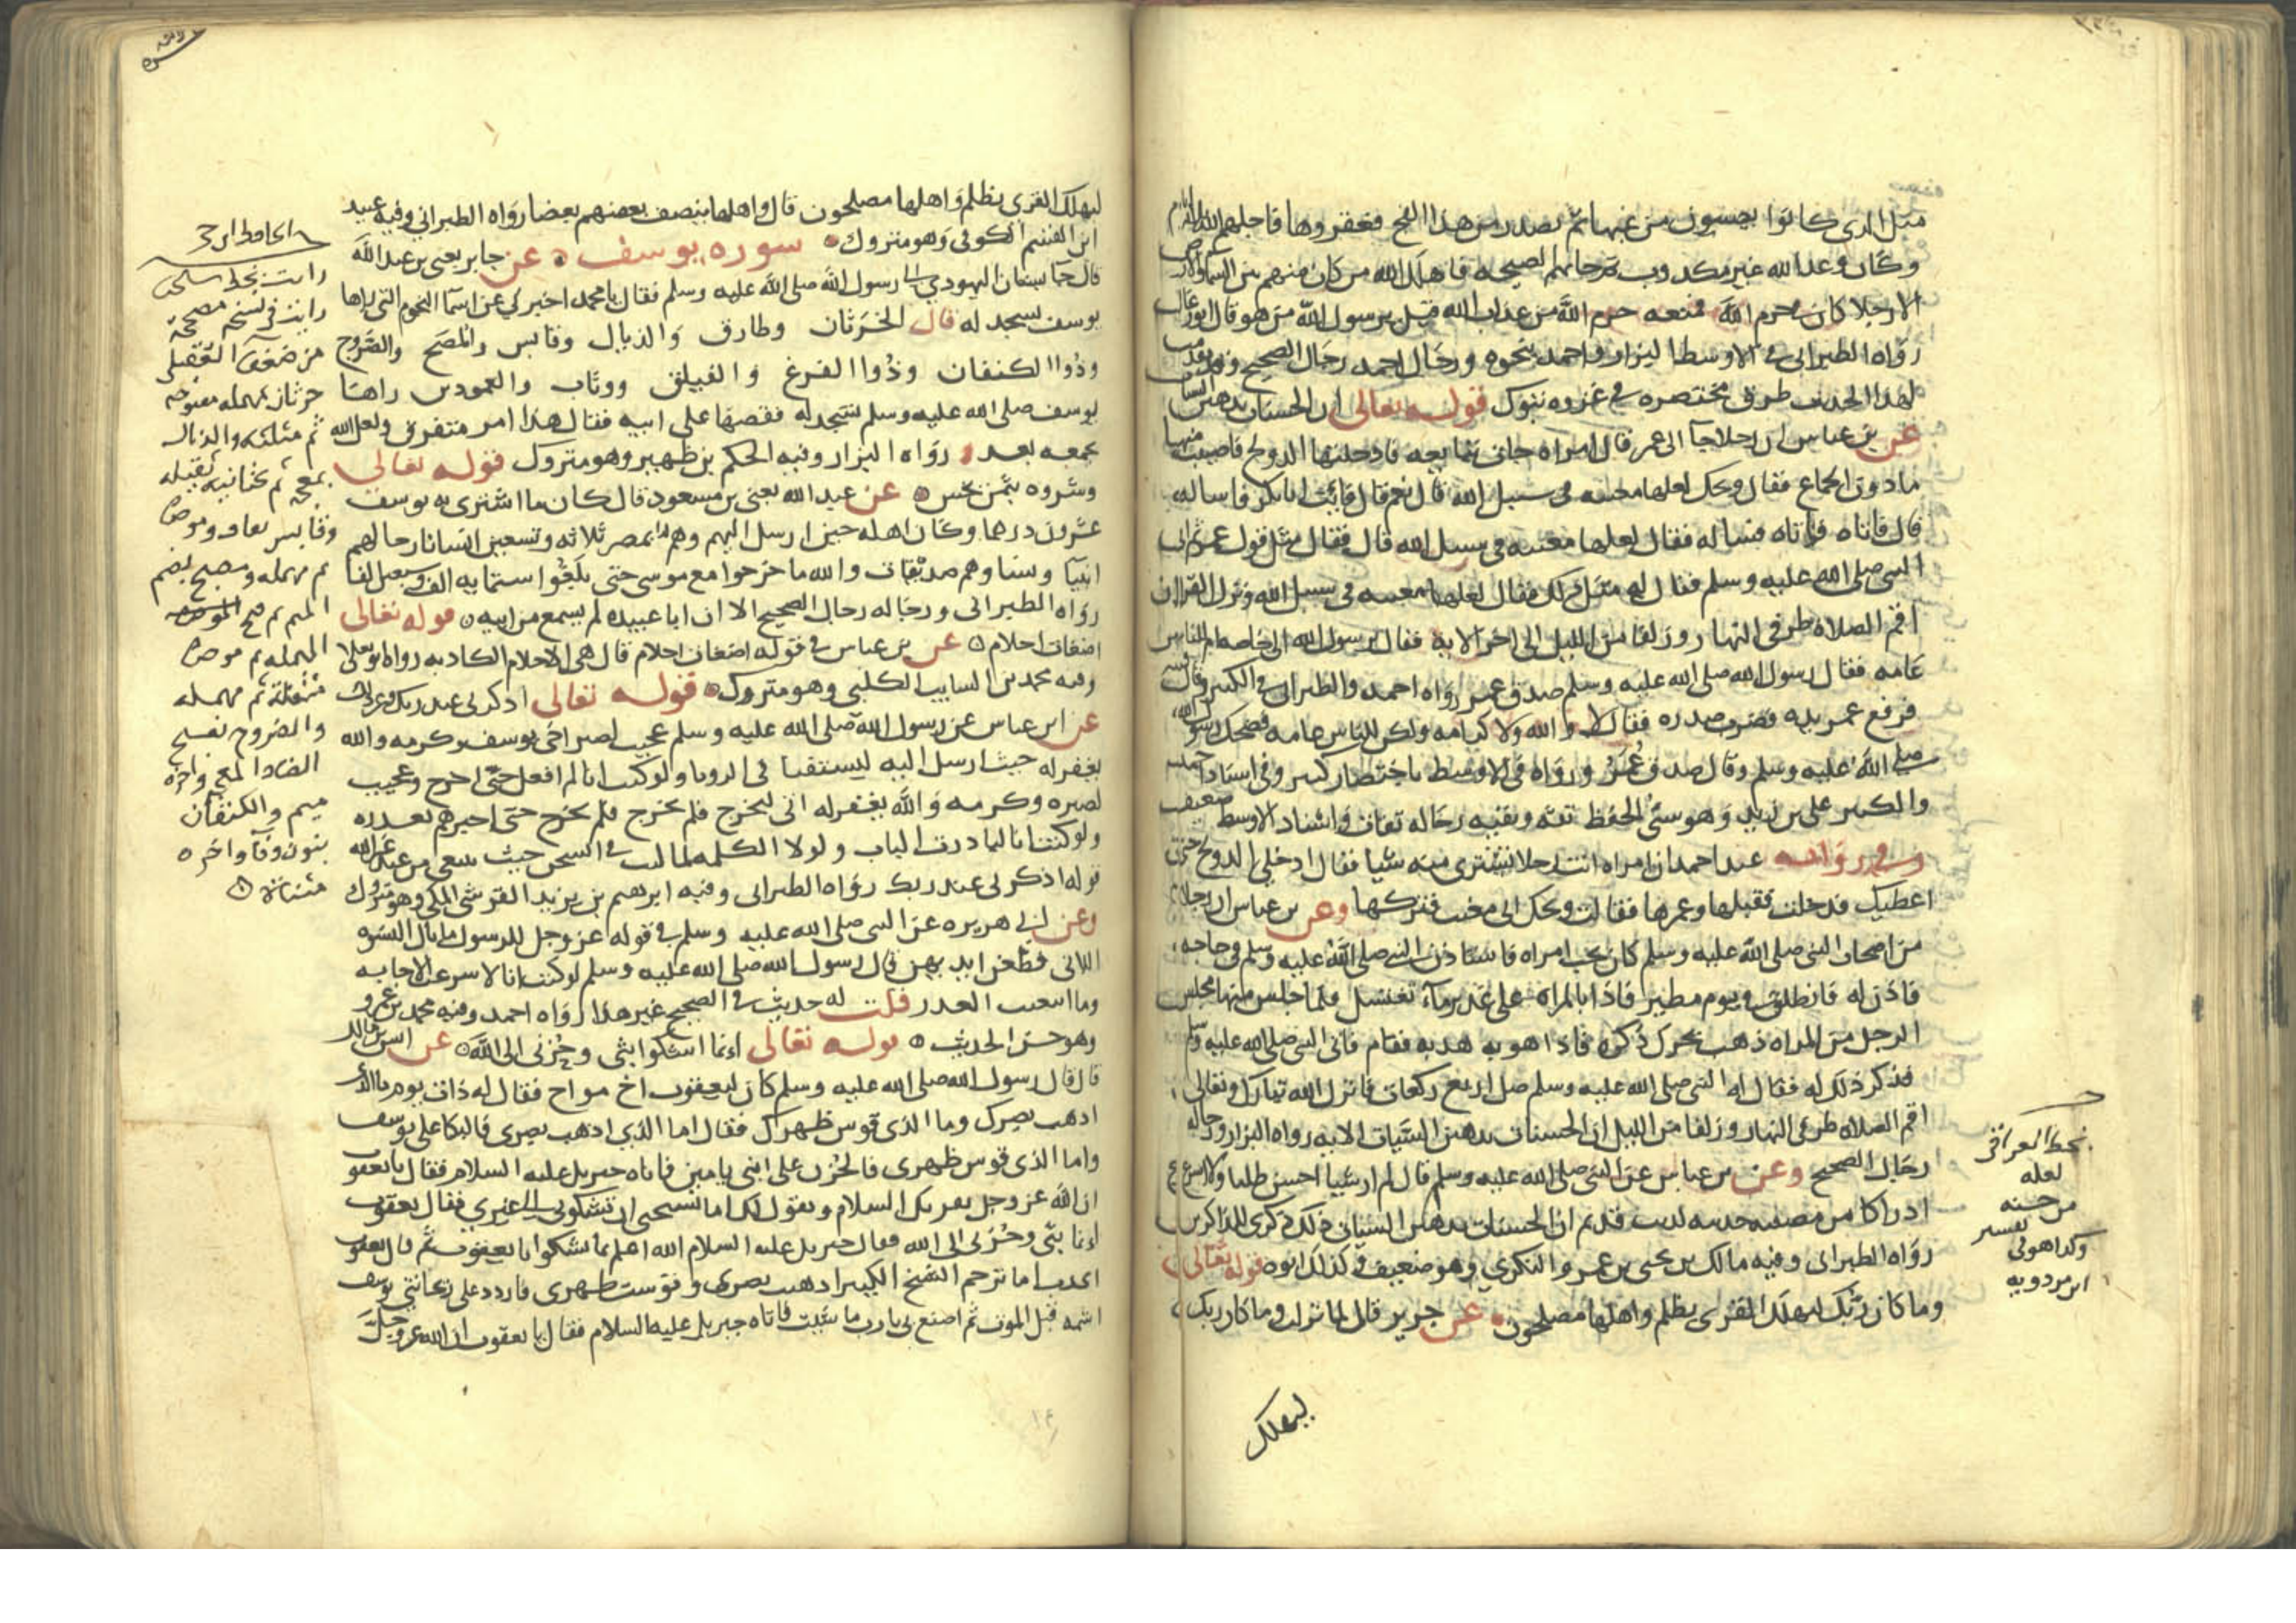 مثل الذي كانوا يحبسون من غبها ثم تصدر من هذا الفج فعقروها فاجلهم الله ثلثه ايام
وكان وعد الله غير مكدوب ثم جاتهم الصيحه فاهلك الله من كان منهم بين السما والارض
الا رجلا كان في حرم الله فمنعه حرم الله من عذاب الله قيل يرسول الله من هو قال ابو رغال
رواه الطبراني في الاوسط والبزار واحمد بنحوه ورجال احمد رجال الصحيح وقد تقدمت
لهذا الحديث طرق مختصره في غزوه تبوك قوله تعالى ان الحسنات يذهبن السيات
عن بن عباس ان رجلا جا الى عمر فقال امراه جات تبايعه فادخلتها الدولج فاصبت منها
ما دون الجماع فقال ويحك لعلها مغيبه في سبيل الله قال نعم قال فايت ابا بكر فاساله
قال فاتاه فساله فقال لعلها مغيبه في سبيل الله قال فقال مثل قول عمر ثم اتى
النبي صلى الله عليه وسلم فقال له مثل ذلك فقال لعلها مغيبه في سبيل الله ونزل القران
اقم الصلاه طرفي النهار وزلفا من الليل الى اخر الايه فقال يرسول الله الي خاصه ام للناس
عامه فقال رسول الله صلى الله عليه وسلم صدق عمر رواه احمد والطبراني في الكبير وقال
فرفع عمر يده فضرب صدره فقال لا والله ولا كرامه ولكن للناس عامه فضحك رسول الله
صلى الله عليه وسلم وقال صدق عمر ورواه في الاوسط باختصار كثير وفي اسناد احمد
والكبير علي بن زيد وهو سيء الحفظ ثقه وبقيه رجاله ثقات واسناد الاوسط ضعيف
وفي روايه عند احمد ان امراه اتت رجلا تشتري منه شيا فقال ادخلي الدولج حتى
اعطيك فدخلت فقبلها وغمزها فقالت ويحك اني مغيب فتركها وعن بن عباس ان رجلا
من اصحاب النبي صلى الله عليه وسلم كان يحب امراه فاستاذن النبي صلى الله عليه وسلم في حاجه
فاذن له فانطلق في يوم مطير فاذا بالمراه على غدير ماء تغتسل فلما جلس منها مجلس
الرجل من المراه ذهب يحرك ذكره فاذا هو به هدبه فقام فاتى النبي صلى الله عليه وسلم
فذكر ذلك له فقال له النبي صلى الله عليه وسلم صل اربع ركعات فانزل الله تبارك وتعالى
اقم الصلاه طرفي النهار وزلفا من الليل ان الحسنات يذهبن السيات الايه رواه البزار ورجاله
رجال الصحيح وعن بن عباس عن النبي صلى الله عليه وسلم قال لم ار شيا احسن طلبا ولا اسرع
ادراكا من حسنه حديثه لذنب قديم ان الحسنات يذهبن السيات ذلك ذكرى للذاكرين
رواه الطبراني وفيه مالك بن يحيى بن عمرو النكري وهو ضعيف وكذلك ابوه قوله تعالى
وما كان ربك ليهلك القرى بظلم واهلها مصلحون عن جرير قال لما نزلت وما كان ربك
ليهلك
بخط المعراقي
لعله
من حسنه
وكذا هو في تفسير
ابن مردويه
ليهلك القرى بظلم واهلها مصلحون قال واهلها ينصف بعضهم بعضا رواه الطبراني وفيه عبيد
ابن القاسم الكوفي وهو متروك سوره يوسف عن جابر يعني بن عبد الله
قال جا بستان اليهودي الى رسول الله صلى الله عليه وسلم فقال يا محمد اخبرني عن اسما النجوم التي راها
يوسف تسجد له قال الخرثان وطارق والذيال وقابس والمصح والضروج
وذوا الكنفان وذوا الفرغ والفيلق ووثاب والعمودين راها
يوسف صلى الله عليه وسلم تسجد له فقصها على ابيه فقال هذا امر متفرق ولعل الله
يجمعه بعد رواه البزار وفيه الحكم بن ظهير وهو متروك قوله تعالى
وشروه بثمن بخس عن عبد الله يعني بن مسعود قال كان ما اشتري به يوسف
عشرون درهما وكان اهله حين ارسل اليهم وهم بمصر ثلاثه وتسعين انسانا رجالهم
انبيا ونساوهم صديقات والله ما خرجوا مع موسى حتى بلغوا ستمايه الف وسبعين الفا
رواه الطبراني ورجاله رجال الصحيح الا ان ابا عبيده لم يسمع من ابيه قوله تعالى
اضغات احلام عن بن عباس في قوله اضغات احلام قال هي الاحلام الكاذبه رواه ابو يعلى
وفيه محمد بن السايب الكلبي وهو متروك قوله تعالى اذكرني عند ربك
عن ابن عباس عن رسول الله صلى الله عليه وسلم عجبت لصبر اخي يوسف وكرمه والله
يغفر له حيث ارسل اليه ليستفتا في الرويا ولو كنت انا لم افعل حتى اخرج وعجبت
لصبره وكرمه والله يغفر له اتي ليخرج فلم يخرج حتى اخبرهم بعذره
ولو كنت انا لبادرت الباب ولولا الكلمه لما لبث في السجن حيث يبتغي من عند غير الله
قوله اذكرني عند ربك رواه الطبراني وفيه ابرهيم بن يزيد القرشي المكي وهو متروك
وعن ابي هريره عن النبي صلى الله عليه وسلم في قوله عز وجل للرسول ما بال النسوه
اللاتي قطعن ايديهن قال رسول الله صلى الله عليه وسلم لو كنت انا لاسرعت الاجابه
وما ابتغيت العذر قلت له حديث في الصحيح غير هذا رواه احمد وفيه محمد بن عمرو
وهو حسن الحديث قوله تعالى انما اشكوا بثي وحزني الى الله عن انس بن مالك
قال قال رسول الله صلى الله عليه وسلم كان ليعقوب اخ مواخ فقال له ذات يوم ما الذي
اذهب بصرك وما الذي قوس ظهرك فقال اما الذي اذهب بصري فالبكا على يوسف
واما الذي قوس ظهري فالحزن على ابني يامين فاتاه جبريل عليه السلام فقال يا يعقوب
ان الله عز وجل يقريك السلام ويقول لك اما تستحي ان تشكوني الى غيري فقال يعقوب
انما بثي وحزني الى الله فقال جبريل عليه السلام الله اعلم بما تشكوا يا يعقوب ثم قال يعقوب
اي رب اما ترحم الشيخ الكبير اذهبت بصري وقوست ظهري فاردد علي ريحانتي يوسف
اشمه قبل الموت ثم اصنع بي يارب ما شيت فاتاه جبريل عليه السلام فقال يا يعقوب ان الله عز وجل
الحافظ ابن حجر
رايت بخط
رايت في نسخه مصححه
من ضعفا العقيلي
خرثان بمهمله مفتوحه
ثم مثلثه والذيال
بمعجمه ثم تحتانيه ثقيله
وقابس بقاف وموحده
ثم مهمله ومصبح بضم
الميم ثم فتح
المهمله ثم موحده
مثقله ثم مهمله
والضروج بفتح
الضاد المعجمه واخره
جيم والكنفان
بنون وفا واخره
مثناه